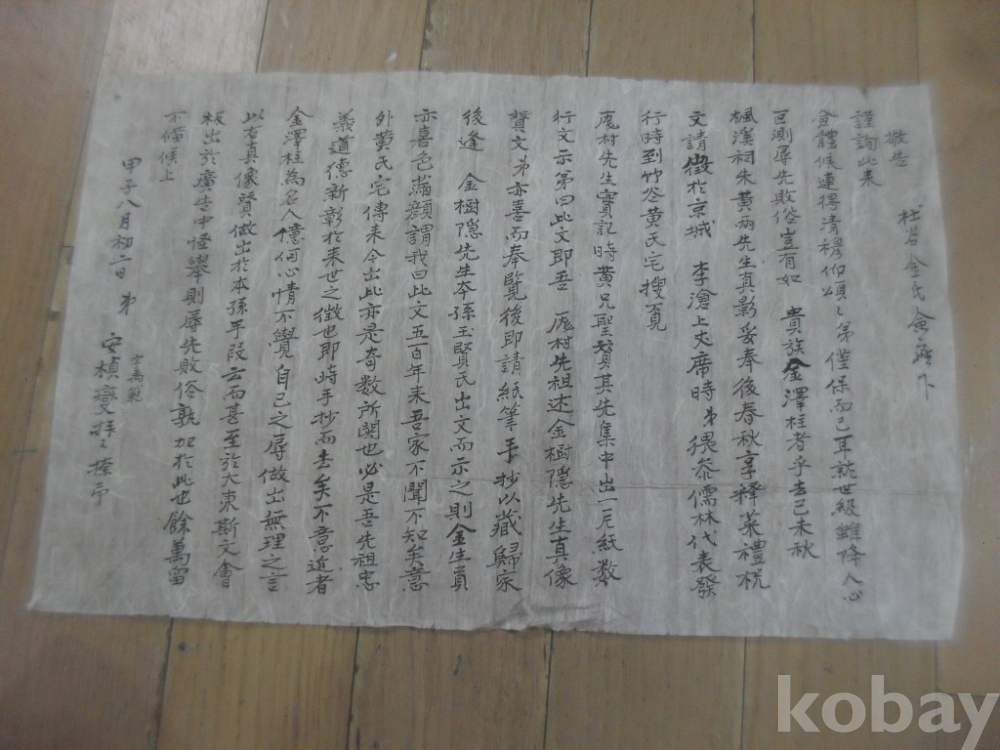 敬告
杜谷金氏僉座下
謹詢此來
僉體候連得清穆仰頌〻弟僅保而已耳試世級雖降人心
叵測辱先敗俗豈有如 貴族金澤柱者乎去己未秋
楓溪祠朱黃兩先生真影妥奉後春秋享釋菜禮祝
文請徵於京城 李滄上丈席時弟猥忝儒林代表發
行時到竹谷黃氏宅搜覓
厖村先生實記時黃兄聖賢其先集中出一尺紙数
行文示弟曰此文即吾 厖村先祖述金樹隱先生真像
贊文弟亦喜而奉覽後即請紙筆手抄以藏歸家
後逢 金樹隱先生本孫玉賢氏出文而示之則金生員
亦喜色滿顏謂我曰此文五百年來吾家不聞不知矣意
外黃氏宅傳來今出此亦是奇數所関也必是吾先祖忠
義道德新彰於來世之徵也即時手抄而去矣不意近者
金澤柱為名人億何心情不覺自己之辱做出無理之言
以右真像贊做出於本孫手段云而甚至於大東斯文會
板出於廣告中怪擧則辱先敗俗孰加於此也餘萬留
不備候上
甲子八月初二日弟 安楨燮拜〻